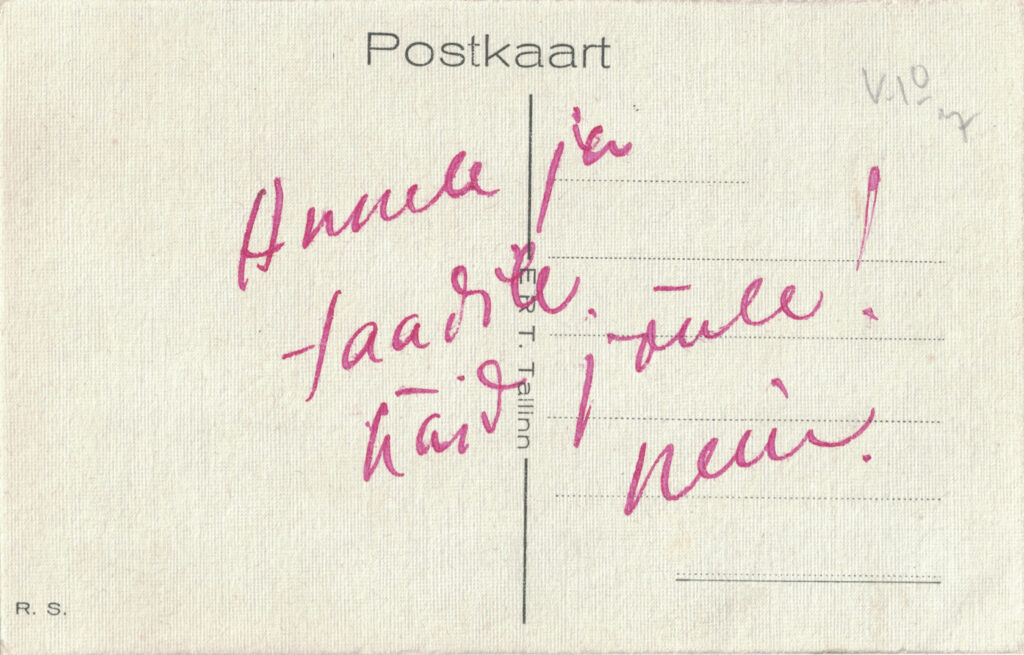 Postkaart
V.10
Annele ja
taadile.
häid jõule!
Hein.
E R T. Tallinn
R. S.